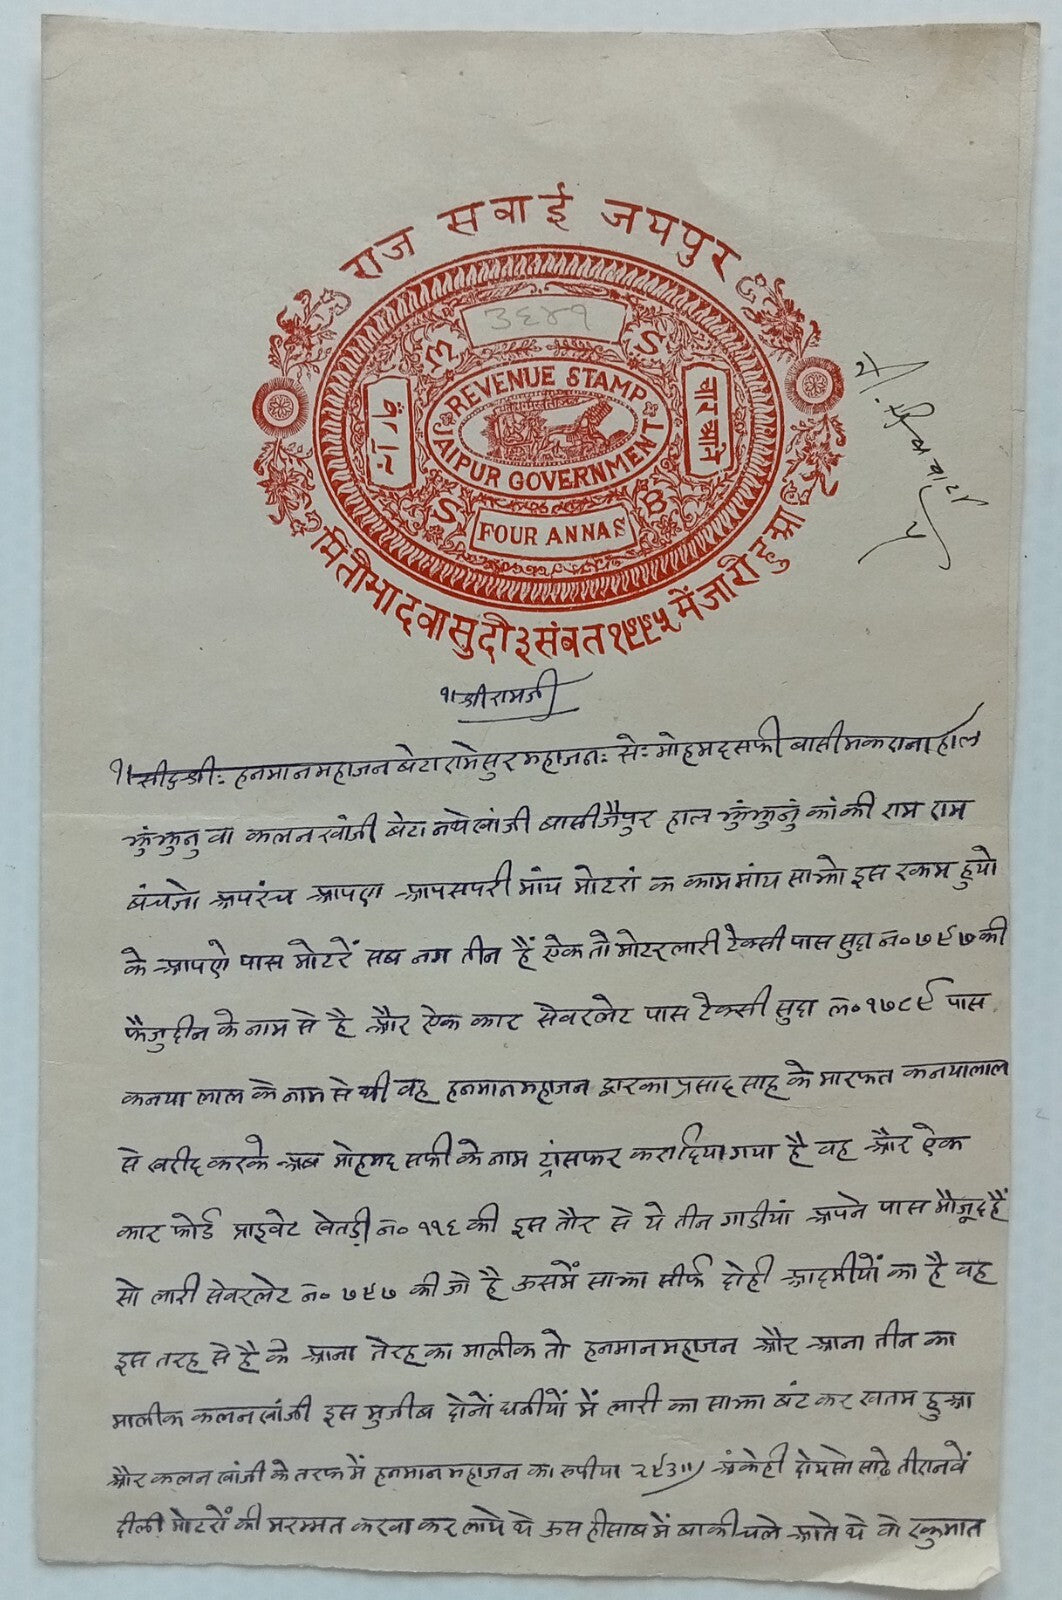 राज सवाई जयपुर
३६४१
M S
REVENUE STAMP
चार आने
JAIPUR GOVERNMENT
S B
FOUR ANNAS
मिती भादवा सुदी ३ संवत १९९५ में जारी हुआ
१। श्री रामजी
१। सीद श्री: हनमान महाजन बेटा रामेसुर महाजन: से: मोहमद सफी बासी मकराना हाल
झुंझुनु वा कलन खांजी बेटा नथे खांजी बासी जैपुर हाल झुंझुनुं कां की राम राम
बंचजो अपरंच आपणा आपसपरी मांय मोटरां क काम मांय साझो इस रकम हुयो
के आपणे पास मोटरें सब नग तीन हैं ऐक तो मोटर लारी टेक्सी पास सुदा न॰ ७९७ की
फैजुदीन के नाम से है और ऐक कार सेवरलेट पास टेक्सी सुदा न॰ १७८९ पास
कनया लाल के नाम से थी वह हनमान महाजन द्वारका प्रसाद साह के मारफत कनयालाल
से खरीद करके अब मोहमद सफी के नाम ट्रांसफर करा दिया गया है वह और ऐक
कार फोर्ड प्राइवेट खेतड़ी न॰ ११६ की इस तौर से ये तीन गाडीयां अपने पास मौजूद हैं
सो लारी सेवरलेट न॰ ७९७ की जो है ऊसमें साझा सीर्फ दो ही आदमीयों का है वह
इस तरह से है के आना तेरह का मालीक तो हनमान महाजन और आना तीन का
मालीक कलन खांजी इस मुजीब दोनों धनीयों में लारी का साझा बंट कर खतम हुआ
और कलन खांजी के तरफ में हनमान महाजन का रुपीया २९३॥) अंके ही दोयसो साढे तीरानवें
दीली मोटरों की मरम्मत करवा कर लाये थे ऊस हीसाब में बाकी चले आते थे वो रकुमात